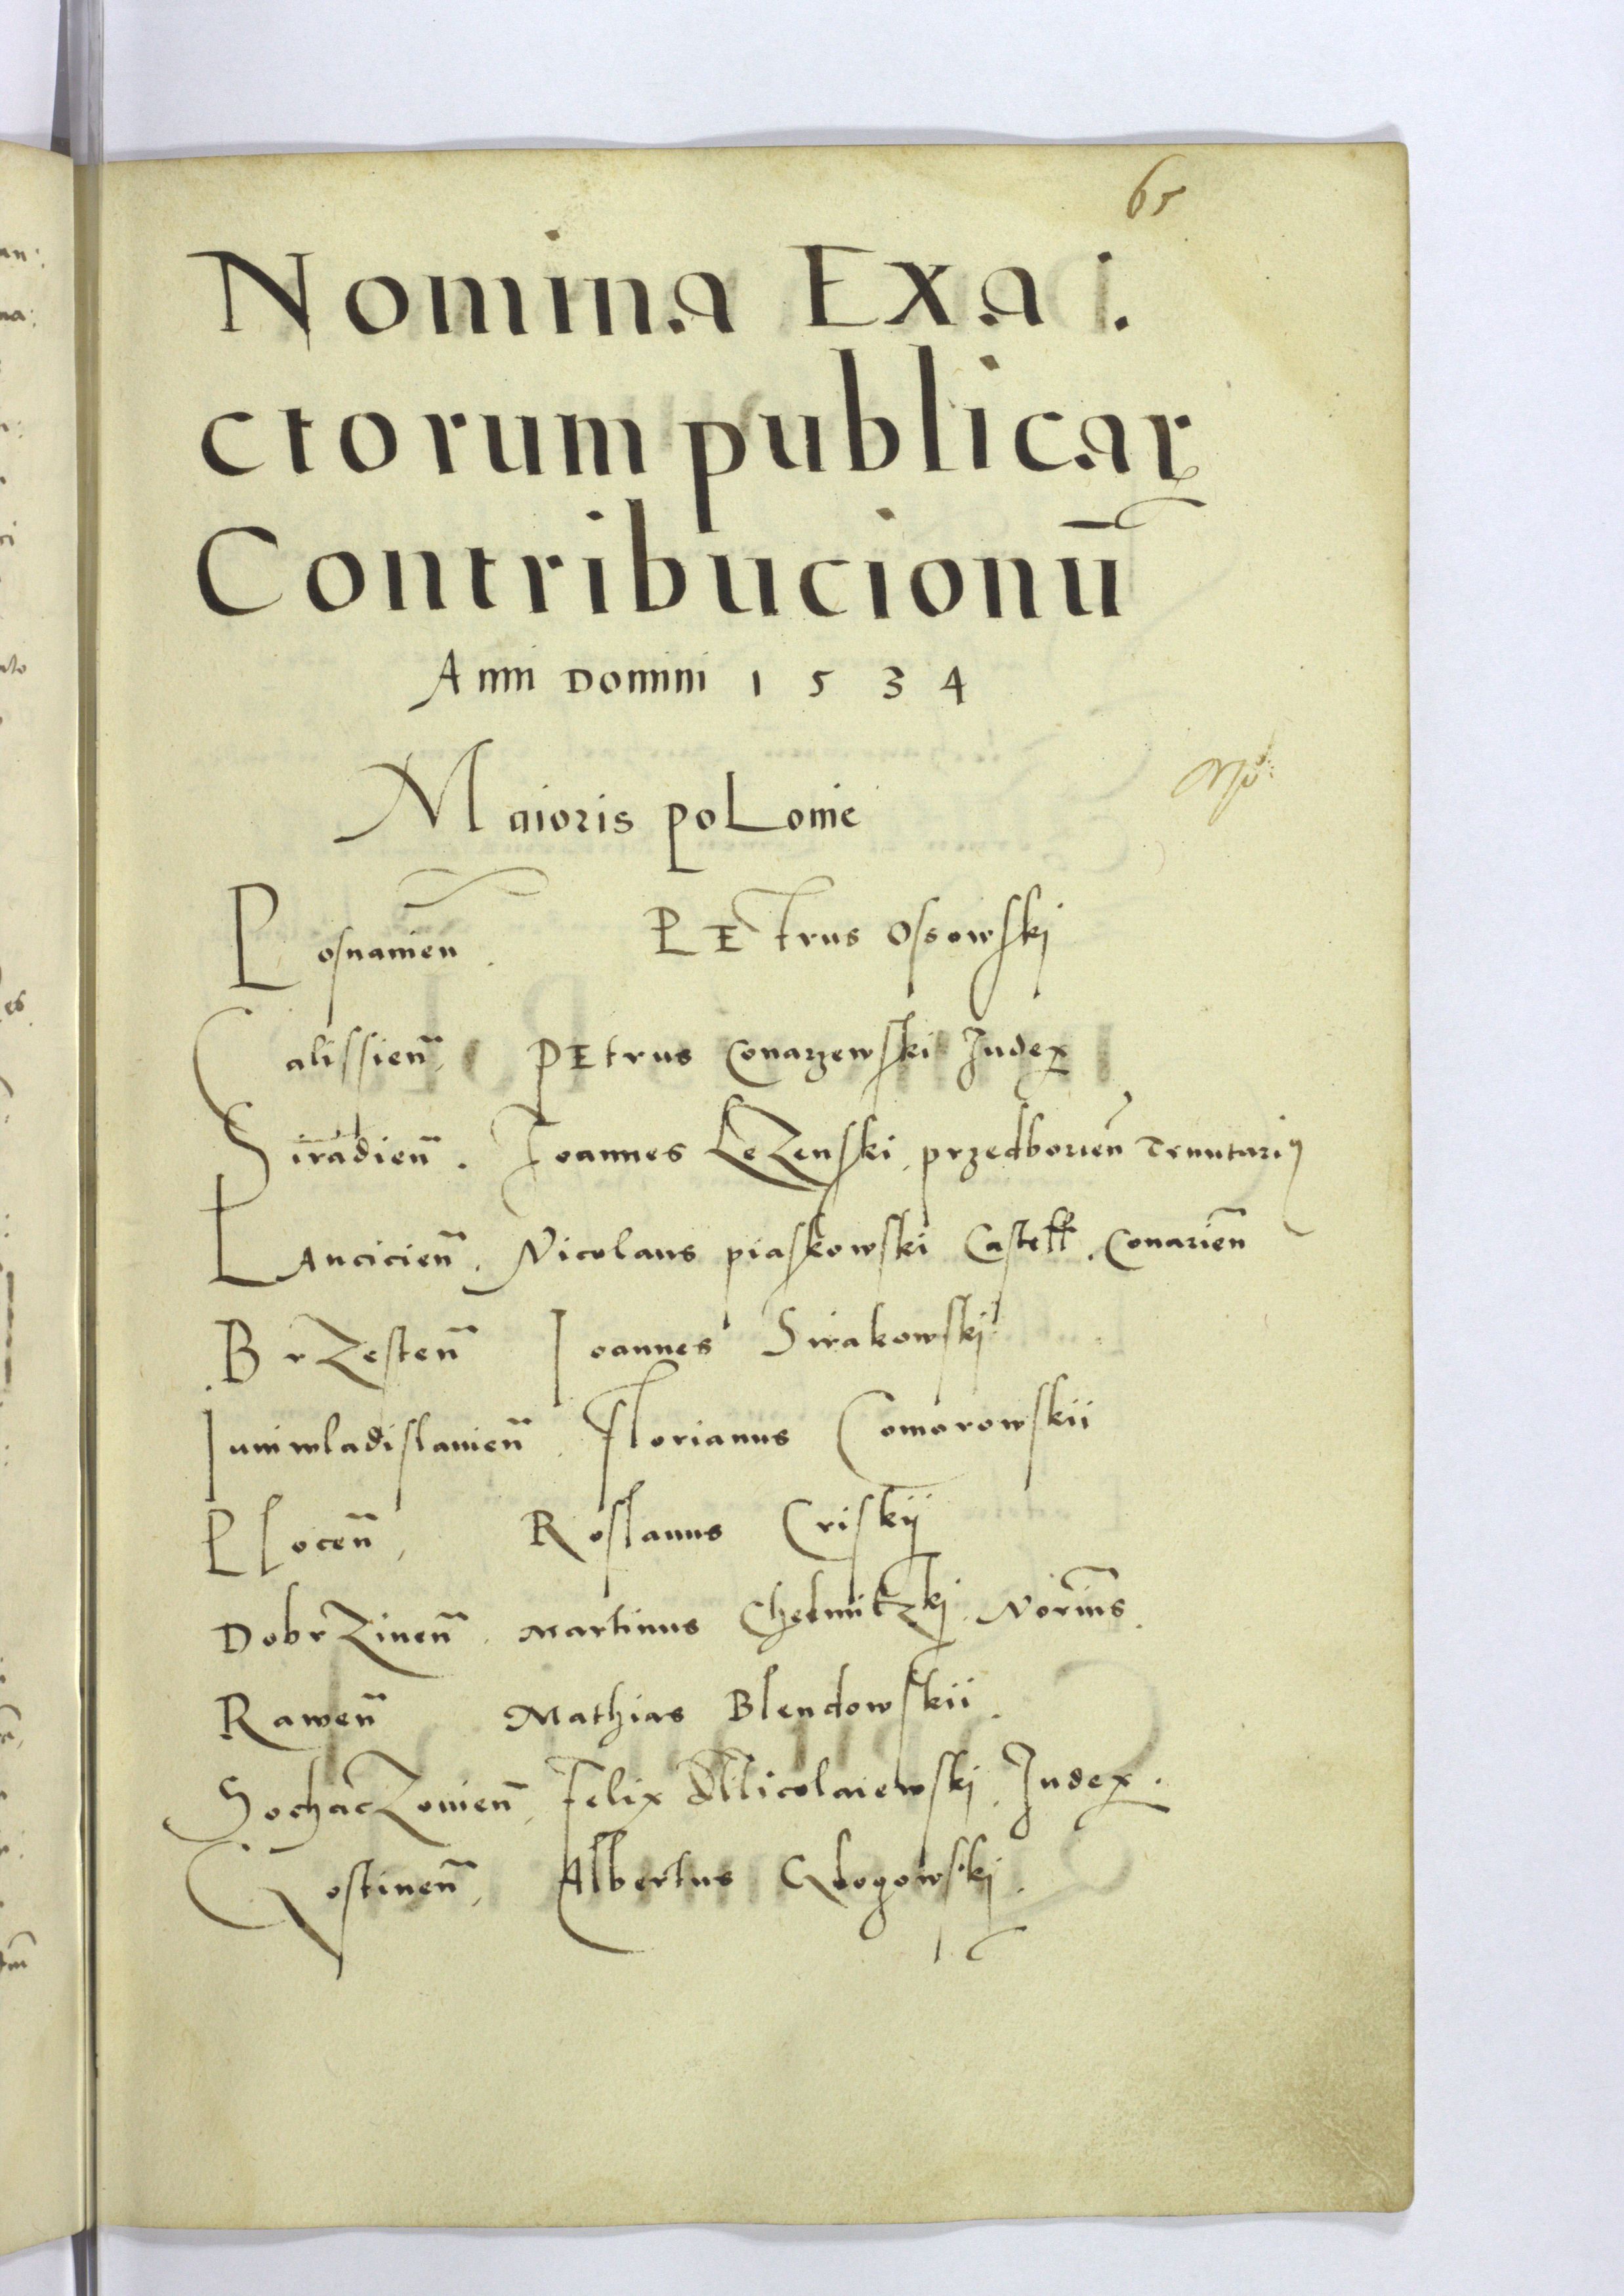 65
Nomina Exa.
ctorum publicaꝝ
Contribucionū
Anni Domini 1534
Maioris polonie
Posnanien̄. Petrus Ossowskj
Calissien̄, Petrus Conarzewski Judex
Siradien̄. Joannes Lezenski, przedborien̄ Tenutariꝰ
Lancicien̄. Nicolaus piaskowski Castell. Conarien̄
Brzesten̄ Joannes Sirakowskj
Juniwladislauien̄. Florianus Comorowskii
Plocen̄, Roslanus Criskij
Dobrzinen̄. Martinus Chelmitzkj.
Rawen̄ Mathias Blendowskii.
Sochaczouien̄, Felix Micolaiewskj. Judex.
Gostinen̄, Albertus Glogowskj.